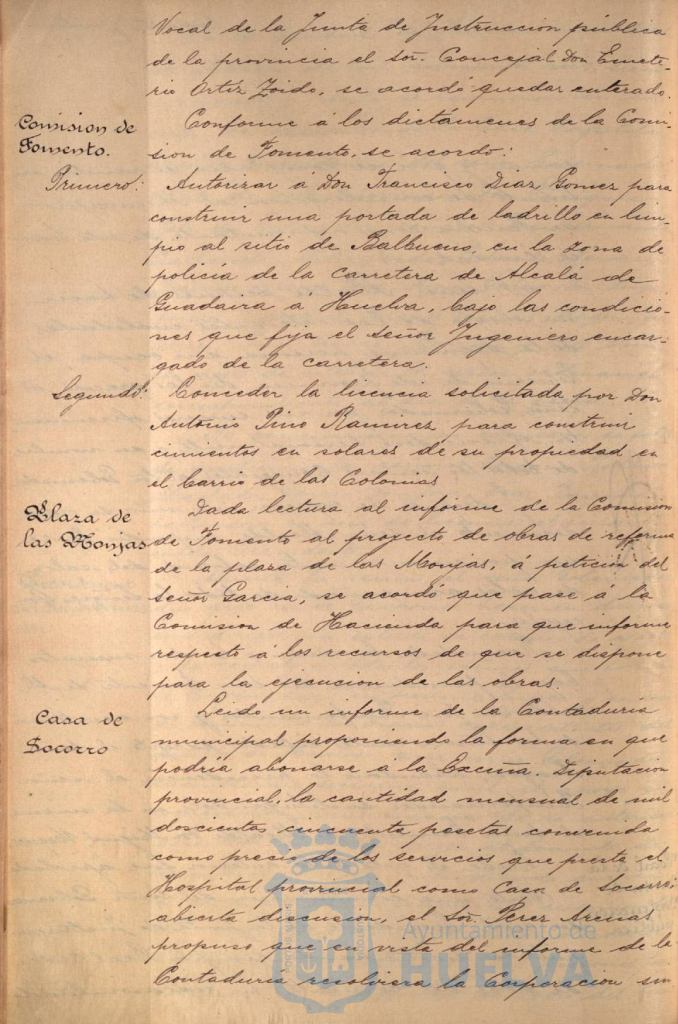 Vocal de la Junta de Instruccion pública
de la provincia el Sor. Concejal Don Emete-
rio Ortíz Zoido, se acordó quedar enterado.
Comision de
Fomento.
Conforme á los dictámenes de la Comi-
sion de Fomento, se acordó:
Primero:
Autorizar á Don Francisco Diaz Gomez para
construir una portada de ladrillo en lim-
pio al sitio de Balbueno, en la zona de
policía de la carretera de Alcalá de
Guadaira á Huelva, bajo las condicio-
nes que fija el Señor Ingeniero encar-
gado de la carretera.
Segundo:
Conceder la licencia solicitada por Don
Antonio Pino Ramirez para construir
cimientos en solares de su propiedad en
el barrio de las Colonias
Plaza de
las Monjas
Dada lectura al informe de la Comision
de Fomento al proyecto de obras de reforma
de la plaza de las Monjas, á peticion del
Señor Garcia, se acordó que pase á la
Comision de Hacienda para que informe
respecto á los recursos de que se dispone
para la ejecucion de las obras.
Casa de
Socorro
Leido un informe de la Contaduría
municipal proponiendo la forma en que
podría abonarse á la Excma. Diputacion
provincial, la cantidad mensual de mil
doscientas cincuenta pesetas convenida
como precio de los servicios que presta el
Hospital provincial como Casa de Socorro;
abierta discusion, el Sor. Pérez Arenas
propuso que en vista del informe de la
Contaduría resolviera la Corporacion sin
Ayuntamiento de
HUELVA